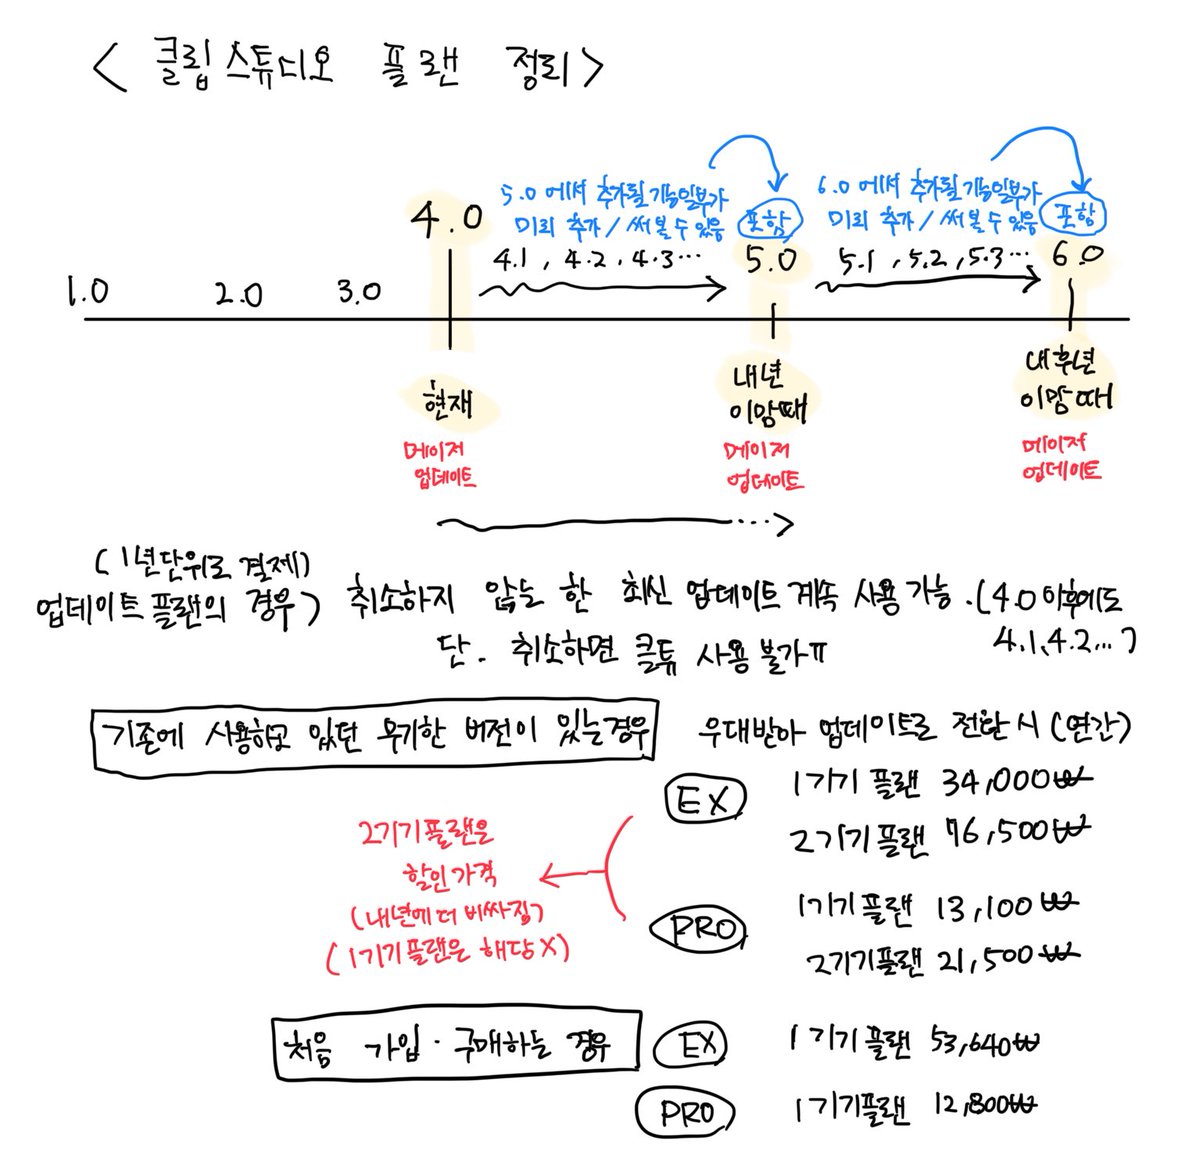 < 클립스튜디오 플랜 정리>
5.0 에서 추가될 기능일부가
미리 추가 / 써볼 수 있음
포함
6.0 에서 추가될 기능일부가
미리 추가 / 써볼 수 있음
포함
1.0 2.0 3.0 4.0 4.1, 4.2. 4.3... 5.0 5.1, 5.2, 5.3... 6.0
현재
메이저
업데이트
내년
이맘때
메이저
업데이트
내후년
이맘때
메이저
업데이트
(1년단위로 결제)
업데이트 플랜의 경우) 취소하지 않는 한 최신 업데이트 계속 사용 가능. (4.0 이후에도
4.1, 4.2...)
단. 취소하면 클튜 사용 불가ㅠ
기존에 사용하고 있던 무기한 버전이 있는경우
우대받아 업데이트로 전환 시 (연간)
EX
1기기 플랜 34,000₩
2기기 플랜 76,500₩
2기기 플랜은
할인가격
(내년에 더 비싸짐)
(1기기 플랜은 해당X)
PRO
1기기 플랜 13,100₩
2기기플랜 21,500₩
처음 가입·구매하는 경우
EX
1기기플랜 53,640₩
PRO
1기기플랜 12,800₩